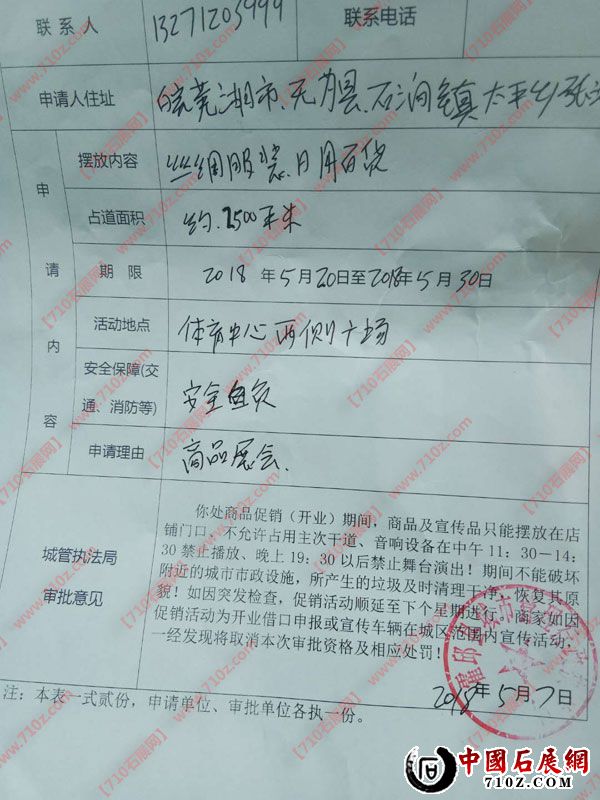 联系人 13271203999 联系电话
申请人住址 皖芜湖市、无为县、石涧镇太平乡
申请内容
摆放内容 丝绸服装、日用百货
占道面积 约.2500平米
期限 2018年5月20日至2018年5月30日
活动地点 体育中心西侧广场
安全保障(交
通、消防等) 安全自负
申请理由 商品展会.
城管执法局
审批意见
你处商品促销（开业）期间，商品及宣传品只能摆放在店
铺门口，不允许占用主次干道、音响设备在中午11：30-14：
30禁止播放、晚上19：30以后禁止舞台演出！期间不能破坏
附近的城市市政设施，所产生的垃圾及时清理干净，恢复其原
貌！如因突发检查，促销活动顺延至下个星期进行。商家如因
促销活动为开业借口申报或宣传车辆在城区范围内宣传活动，
一经发现将取消本次审批资格及相应处罚！
2018年5月7日
注：本表一式贰份，申请单位、审批单位各执一份。
【710石展网】
www.710z.com
中國石展網
710Z.COM